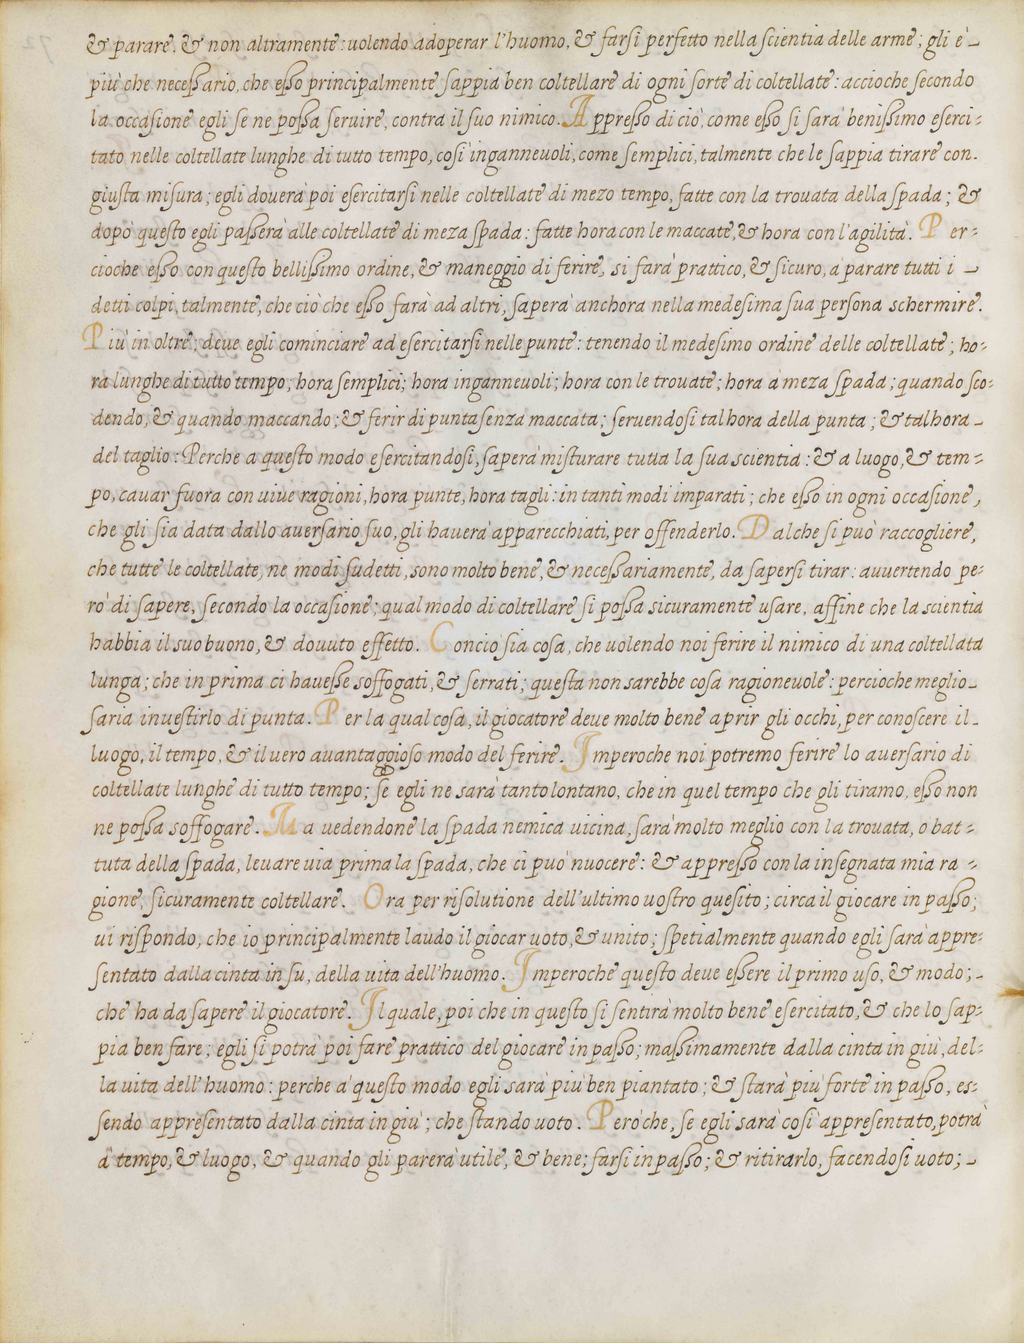 & parare, & non altramente: uolendo adoperar l'huomo, & farsi perfetto nella scientia delle arme; gli è
più che necessario, che esso principalmente sappia ben coltellare di ogni sorte di coltellate: accioche secondo
la occasione egli se ne possa seruire, contra il suo nimico. Appresso di ciò, come esso si sarà benissimo eserci=
tato nelle coltellate lunghe di tutto tempo, così ingannevoli, come semplici, talmente che le sappia tirare con
giusta misura; egli douerà poi esercitarsi nelle coltellate di mezo tempo, fatte con la trouata della spada; &
dopò questo egli passerà alle coltellate di meza spada: fatte hora con le maccate, & hora con l'agilità. Per=
cioche esso con questo bellissimo ordine, & maneggio di ferire, si farà prattico, & sicuro, a parare tutti i
detti colpi, talmente, che ciò che esso farà ad altri, saperà anchora nella medesima sua persona schermire.
Più in oltre; deue egli cominciare ad esercitarsi nelle punte: tenendo il medesimo ordine delle coltellate; ho=
ra lunghe di tutto tempo; hora semplici; hora ingannevoli; hora con le trouate; hora à meza spada; quando sco=
dendo, & quando maccando; & ferir di punta senza maccata; seruendosi tal hora della punta; & tal hora
del taglio: Perche a questo modo esercitandosi, saperà misturare tutta la sua scientia: & a luogo, & tem=
po, cauar fuora con uiue ragioni, hora punte, hora tagli: in tanti modi imparati; che esso in ogni occasione,
che gli sia data dallo auersario suo, gli hauerà apparecchiati, per offenderlo. Dal che si può raccogliere,
che tutte le coltellate, ne modi sudetti, sono molto bene, & necessariamente, da sapersi tirar: auuertendo pe=
rò di sapere, secondo la occasione; qual modo di coltellare si possa sicuramente usare, affine che la scientia
habbia il suo buono, & douuto effetto. Conciò sia cosa, che uolendo noi ferire il nimico di una coltellata
lunga; che in prima ci hauesse soffogati, & serrati; questa non sarebbe cosa ragioneuole: percioche meglio
saria inuestirlo di punta. Per la qual cosa, il giocatore deue molto bene aprir gli occhi, per conoscere il
luogo, il tempo, & il uero auantaggioso modo del ferire. Imperoche noi potremo ferire lo auersario di
coltellate lunghe di tutto tempo; se egli ne sarà tanto lontano, che in quel tempo che gli tiramo, esso non
ne possa soffogare. Ma uedendone la spada nemica uicina, sarà molto meglio con la trouata, o bat=
tuta della spada, leuare uia prima la spada, che ci può nuocere: & appresso con la insegnata mia ra=
gione, sicuramente coltellare. Ora per risolutione dell'ultimo uostro quesito; circa il giocare in passo;
ui rispondo, che io principalmente laudo il giocar uoto, & unito; spetialmente quando egli sarà appre=
sentato dalla cinta in su, della uita dell'huomo. Imperoche questo deue essere il primo uso, & modo;
che ha da sapere il giocatore. Il quale, poi che in questo si sentirà molto bene esercitato, & che lo sap=
pia ben fare; egli si potrà poi fare prattico del giocare in passo; massimamente dalla cinta in giù, del=
la uita dell'huomo: perche a questo modo egli sarà più ben piantato; & starà più forte in passo, es=
sendo appresentato dalla cinta in giù; che stando uoto. Però che, se egli sarà così appresentato, potrà
à tempo, & luogo, & quando gli parerà utile, & bene; farsi in passo; & ritirarlo, facendosi uoto;